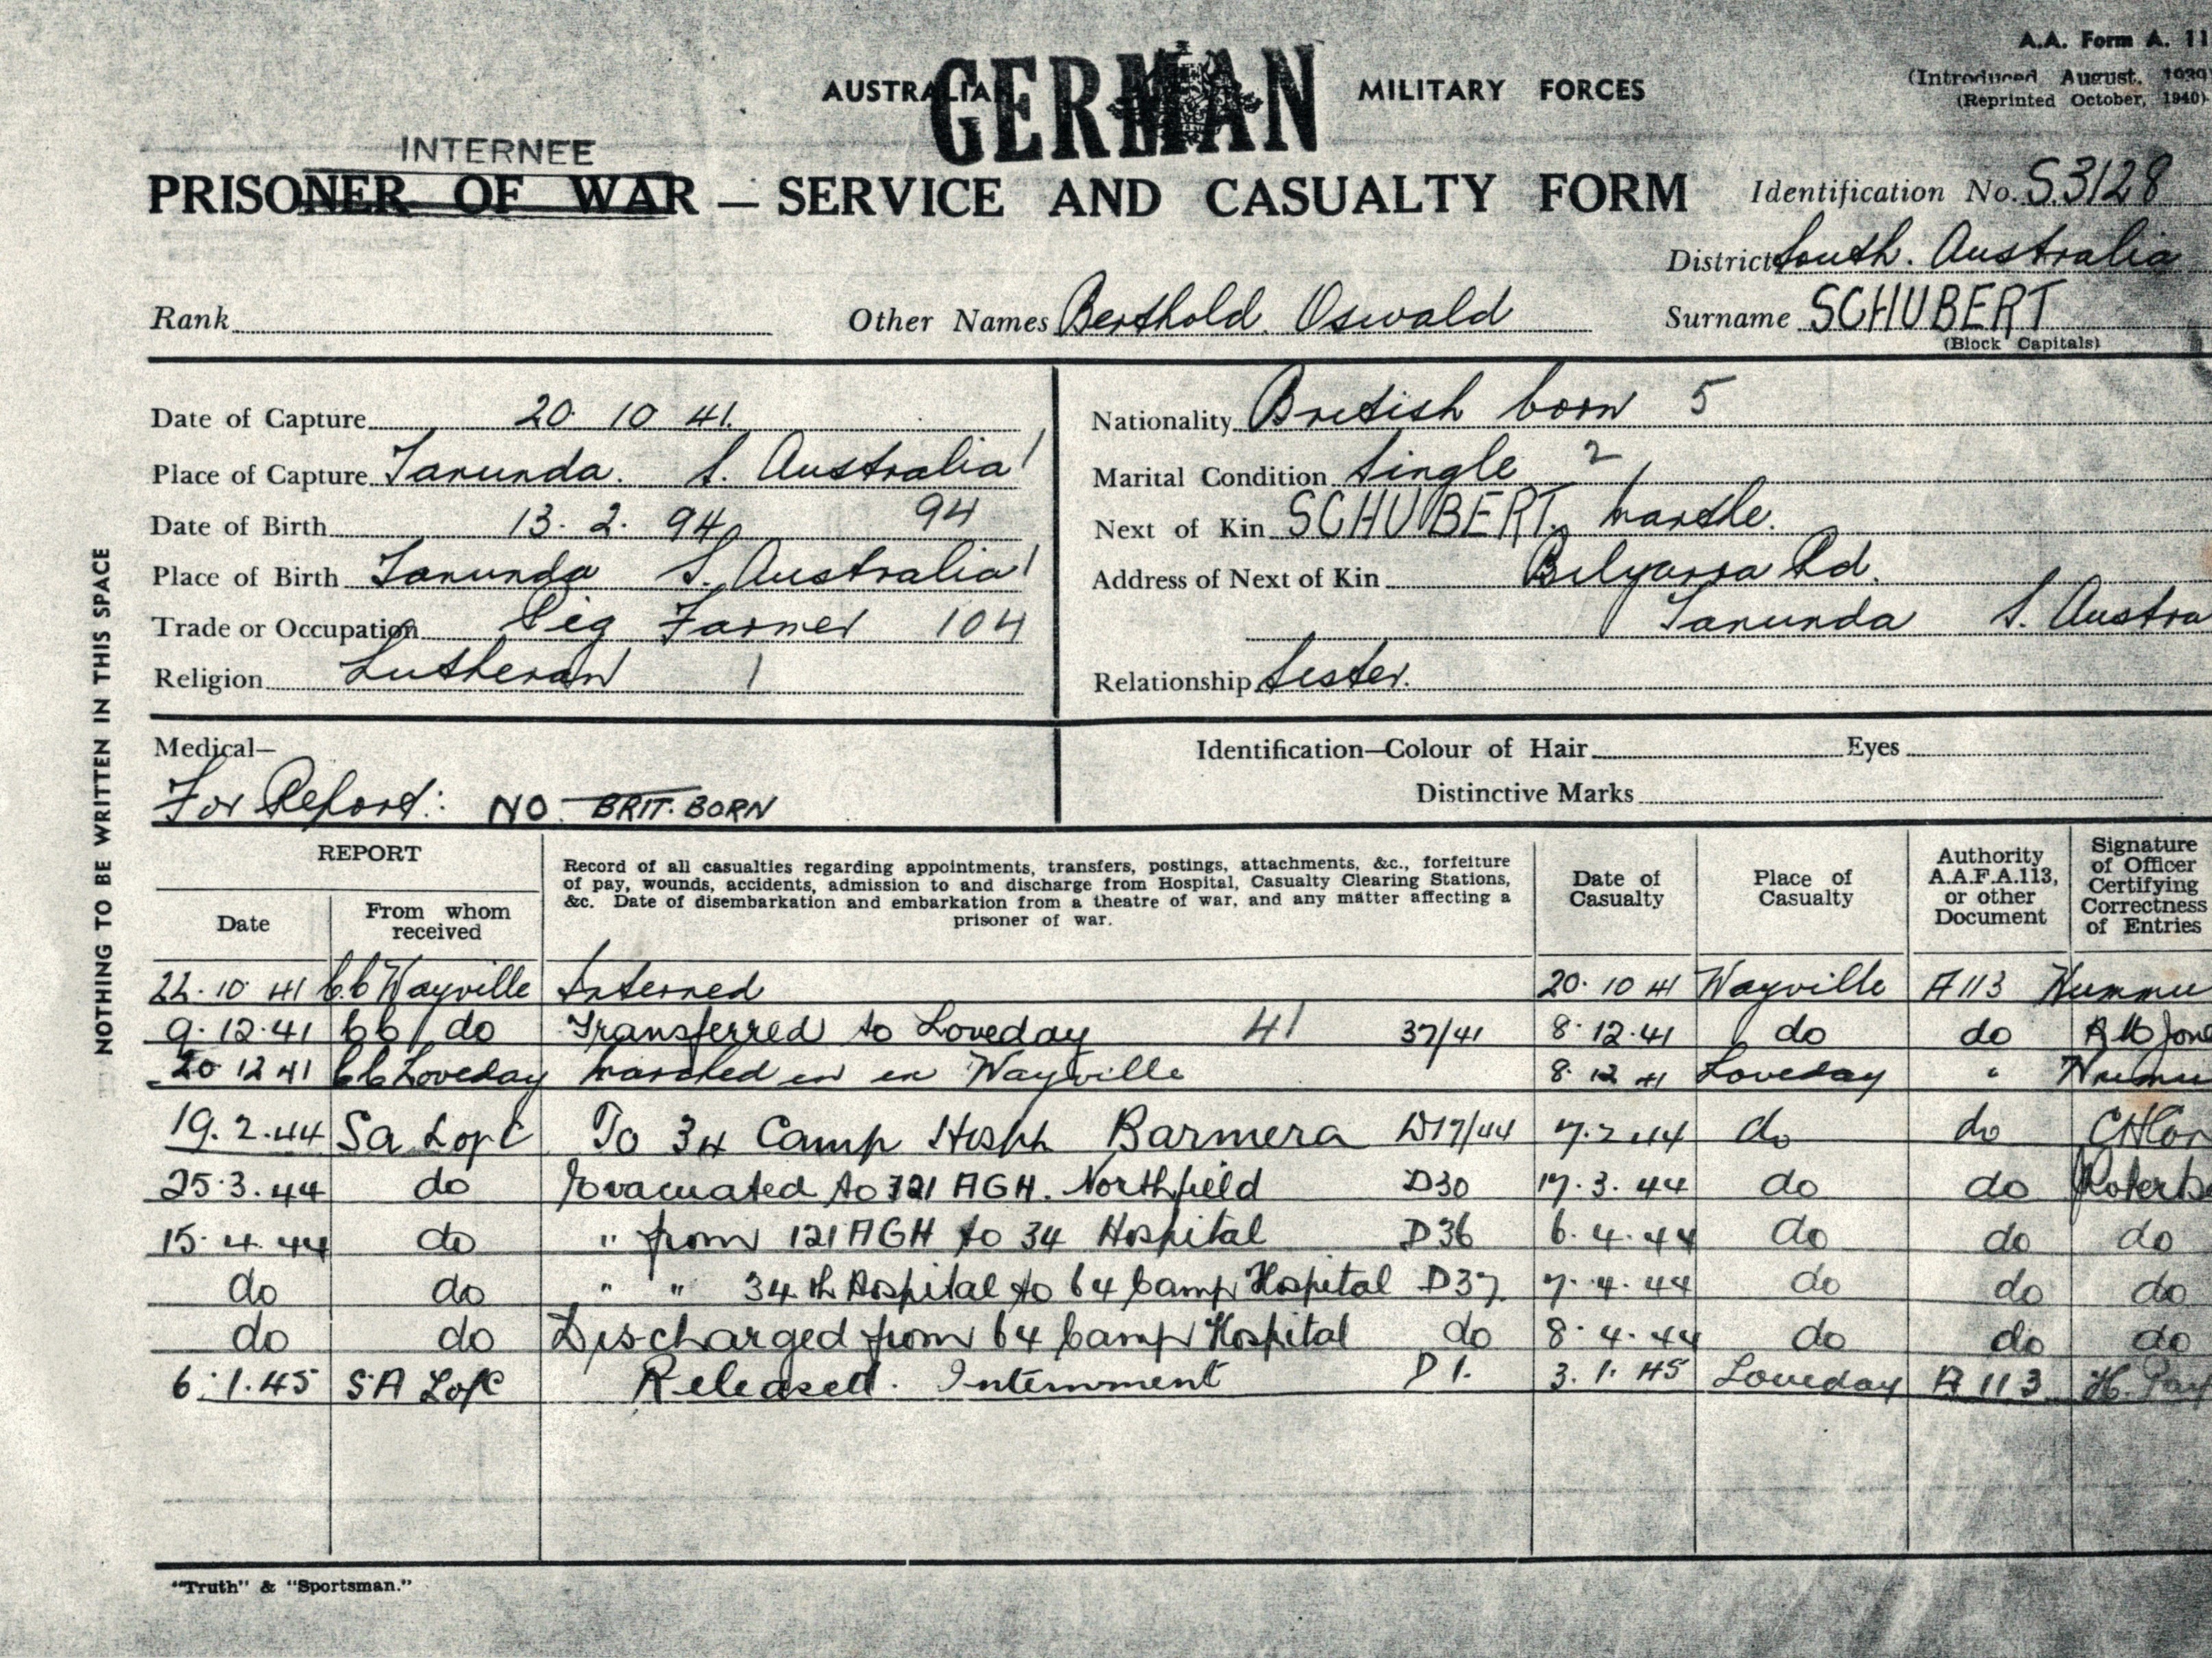 A.A. Form A. 11
(Introduced August, 1939)
(Reprinted October, 1940)
AUSTRALIAN MILITARY FORCES
GERMAN
INTERNEE
PRISONER OF WAR — SERVICE AND CASUALTY FORM
Identification No. S.3128
District South. Australia
Rank Other Names Berthold Oswald Surname SCHUBERT
(Block Capitals)
Date of Capture 20 10 41.
Place of Capture Tanunda. S. Australia 1
Date of Birth 13. 2. 94 94
Place of Birth Tanunda S. Australia 1
Trade or Occupation Pig Farmer 104
Religion Lutheran 1
Nationality British born 5
Marital Condition Single 2
Next of Kin SCHUBERT
Address of Next of Kin Bilyarra Rd.
Tanunda S. Austra
Relationship Sister.
NOTHING TO BE WRITTEN IN THIS SPACE
Medical—
For Report: NO BRIT. BORN
Identification—Colour of Hair Eyes
Distinctive Marks
REPORT
Date
From whom received
Record of all casualties regarding appointments, transfers, postings, attachments, &c., forfeiture
of pay, wounds, accidents, admission to and discharge from Hospital, Casualty Clearing Stations,
&c. Date of disembarkation and embarkation from a theatre of war, and any matter affecting a
prisoner of war.
Date of Casualty
Place of Casualty
Authority A.A.F.A.113, or other Document
Signature of Officer Certifying Correctness of Entries
10 41 Wayville Interned 20. 10 41 Wayville A113
9. 12. 41 do Transferred to Loveday 41 37/41 8. 12. 41 do do
20 12 41 Loveday Marched in Wayville 8. 12 41 Loveday "
19. 2. 44 To Camp Barmera do do
25. 3. 44 do Evacuated to 121 AGH. Northfield D30 17. 3. 44 do do
15. 4. 44 do " from 121 AGH to 34 Hospital D36 6. 4. 44 do do do
do do " " 34th Hospital to 64 Camp Hospital D37 7. 4. 44 do do do
do do Discharged from 64 Camp Hospital do 8. 4. 44 do do do
6. 1. 45 Released. Internment D1. 3. 1. 45 Loveday A 113
"Truth" & "Sportsman."